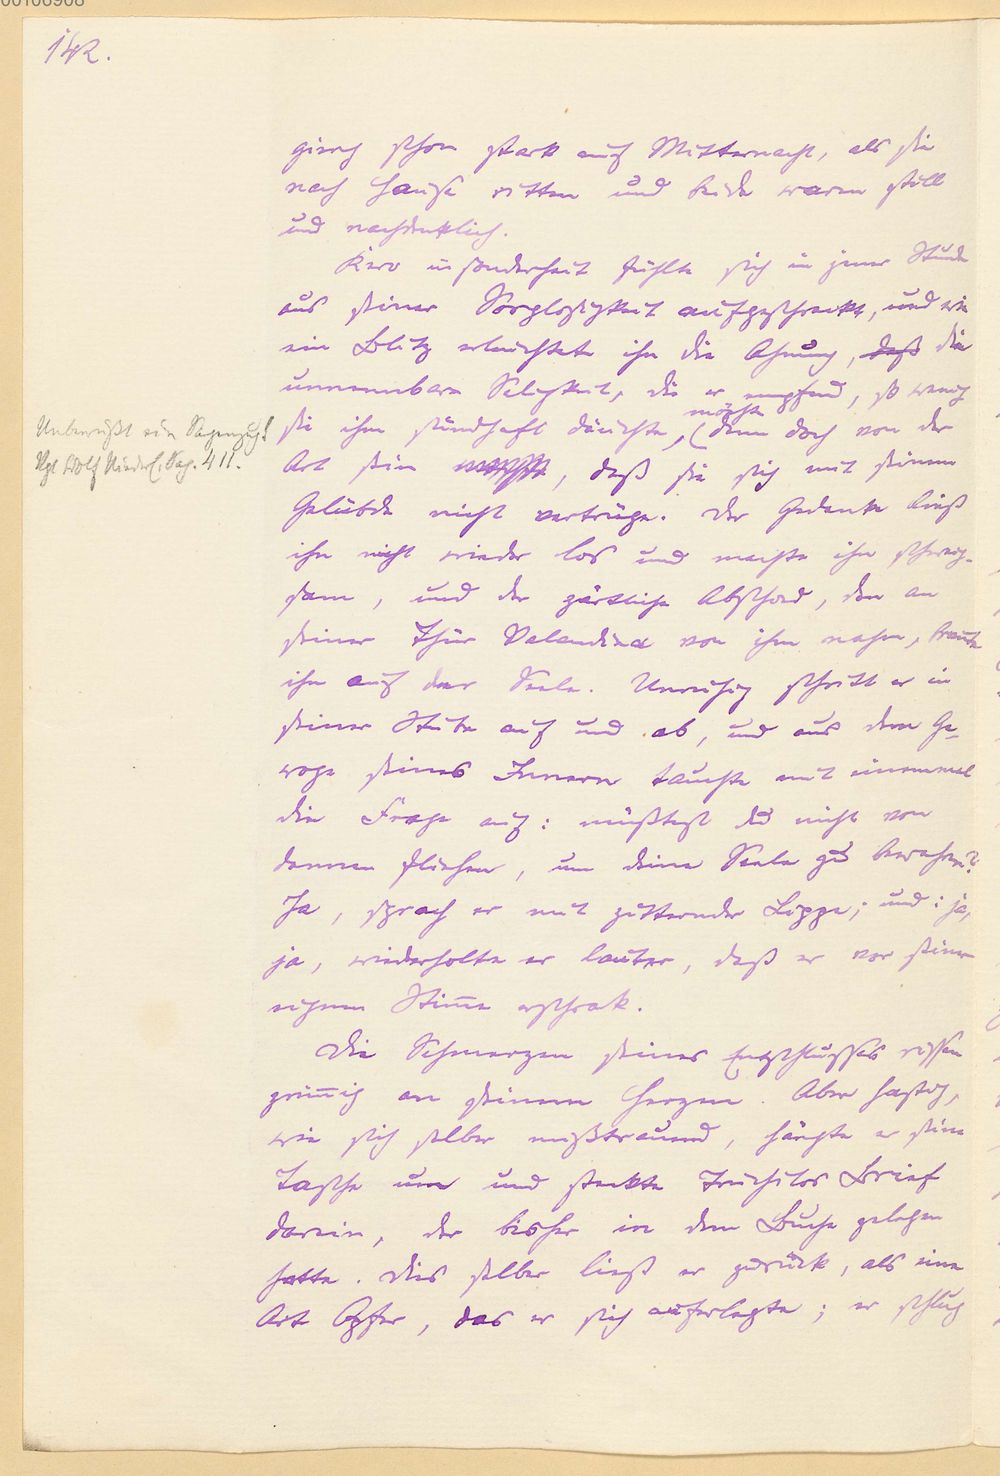 00106968
142.
gieng schon stark auf Mitternacht, als sie
nach Hause ritten und beide waren still
und nachdenklich.
Kero insonderheit fühlte sich in jener Stunde
aus seiner Sorglosigkeit aufgeschreckt, und wie
ein Blitz erleuchtete ihn die Ahnung, daß die
unnennbare Seligkeit, die er empfand, so wenig
möchte
sie ihm sündhaft däuchte, (denn doch von der
Unbewußt ein Sagenzug!
Vgl Wolf Niederl. Sag. 411.
Art sein, daß sie sich mit seinem
Gelübde nicht vertrüge. Der Gedanke ließ
ihn nicht wieder los und machte ihn schweig-
sam, und der zärtliche Abschied, den an
seiner Thür Valandina von ihm nahm, brannte
ihn auf der Seele. Unruhig schritt er in
seiner Stube auf und ab, und aus dem Ge-
woge seines Innern tauchte mit einemmal
die Frage auf: müßtest du nicht von
dannen fliehen, um deine Seele zu bewahren?
Ja, sprach er mit zitternder Lippe; und: ja,
ja, wiederholte er lauter, daß er vor seiner
eignen Stimme erschrak.
Die Schmerzen seines Entschlusses rissen
grimmig an seinem Herzen. Aber hastig,
wie sich selber mißtrauend, hängte er seine
Tasche um und steckte Truchilos Brief
darein, der bisher in dem Buche gelegen
hatte. Dies selber ließ er zurück, als eine
Art Opfer, das er sich auferlegte; er schlug